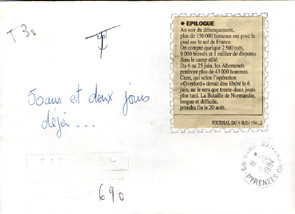 T 30
T
50ans et deux jours
déjà ---
690
◆ EPILOGUE
Au soir du débarquement,
plus de 156 000 hommes ont posé le
pied sur le sol de France.
On compte quelque 2 500 tués,
9 000 blessés et 1 millier de disparus
dans le camp allié.
Du 6 au 25 juin, les Allemands
perdront plus de 43 000 hommes
Caen, qui selon l'opération
«Overlord» devait être libéré le 6
juin, ne le sera que trente-deux jours
plus tard. La Bataille de Normandie,
longue et difficile,
prendra fin le 20 août.
JOURNAL DU 6 JUIN
PYRENEES